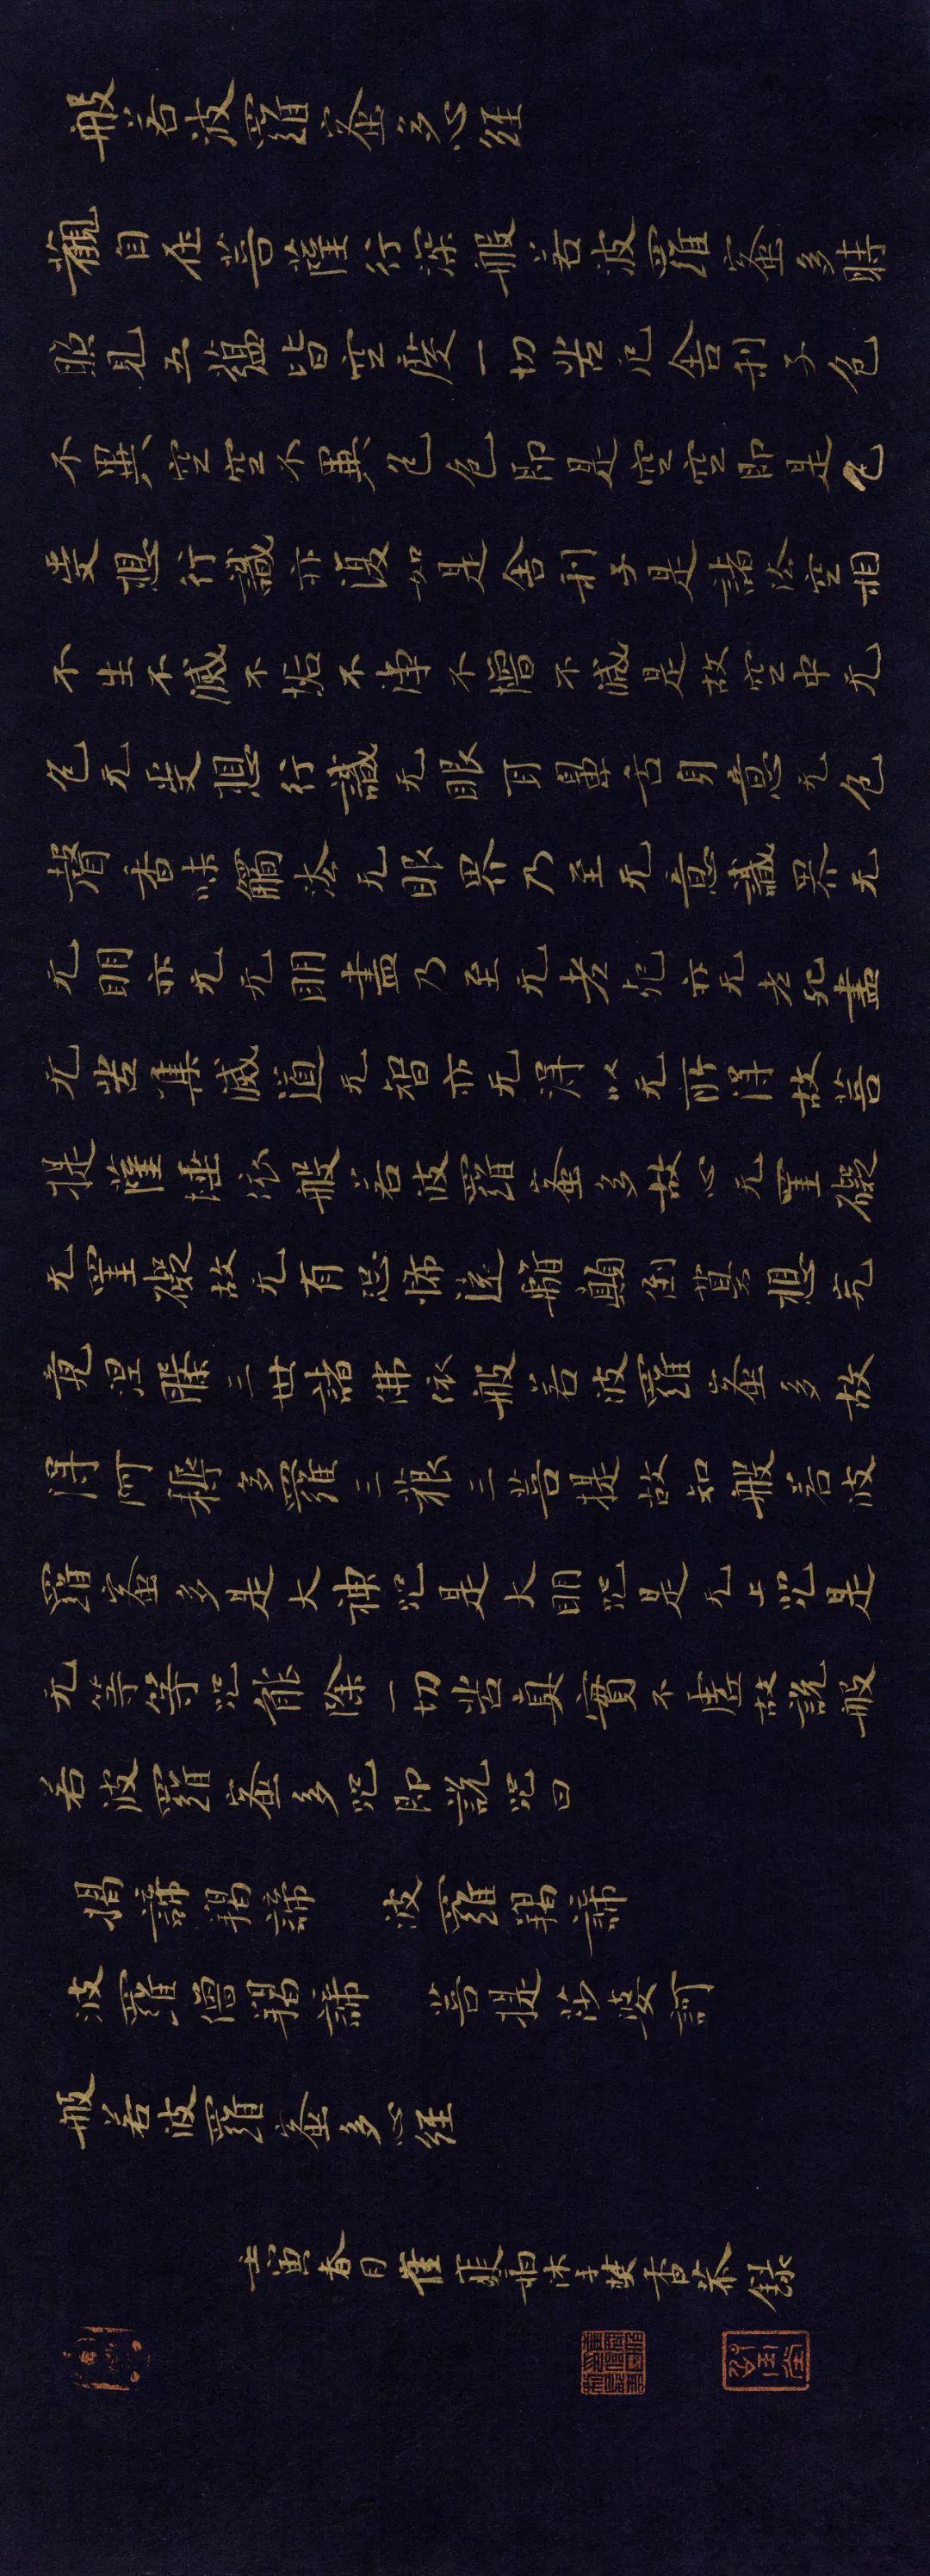 般若波羅蜜多心經
觀自在菩薩行深般若波羅蜜多時
照見五蘊皆空度一切苦厄舍利子色
不異空空不異色色即是空空即是色
受想行識亦復如是舍利子是諸法空相
不生不滅不垢不淨不增不減是故空中无
色无受想行識无眼耳鼻舌身意无色
聲香味觸法无眼界乃至无意識界无
无明亦无无明盡乃至无老死亦无老死盡
无苦集滅道无智亦无得以无所得故菩
提薩埵依般若波羅蜜多故心无罣礙
无罣礙故无有恐怖遠離顛倒夢想究
竟涅槃三世諸佛依般若波羅蜜多故
得阿耨多羅三藐三菩提故知般若波
羅蜜多是大神咒是大明咒是无上咒是
无等等咒能除一切苦真實不虛故說般
若波羅蜜多咒即說咒曰
揭諦揭諦 波羅揭諦
波羅僧揭諦 菩提娑婆訶
般若波羅蜜多心經
壬寅春月 沐手敬書